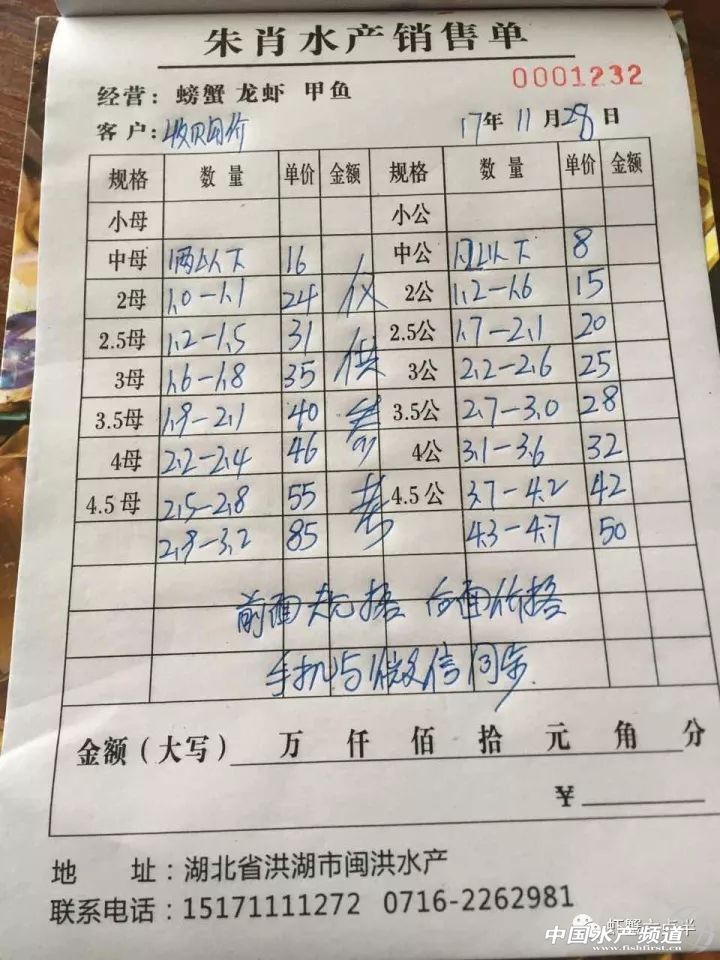 朱肖水产销售单
经营：螃蟹 龙虾 甲鱼 0001232
客户：收购价 17年11月28日
规格 数量 单价 金额 规格 数量 单价 金额
小母 小公
中母 1两以下 16 仅 中公 1两以下 8
2母 1.0-1.1 24 2公 1.2-1.6 15
2.5母 1.2-1.5 31 供 2.5公 1.7-2.1 20
3母 1.6-1.8 35 3公 2.2-2.6 25
3.5母 1.9-2.1 40 参 3.5公 2.7-3.0 28
4母 2.2-2.4 46 4公 3.1-3.6 32
4.5母 2.5-2.8 55 考 4.5公 3.7-4.2 42
2.9-3.2 85 4.3-4.7 50
前面规格 后面价格
手机与微信同步.
金额（大写） 万 仟 佰 拾 元 角 分
¥
地 址：湖北省洪湖市闽洪水产
联系电话：15171111272 0716-2262981
虾蟹六点半
中国水产频道
www.fishfirst.cn